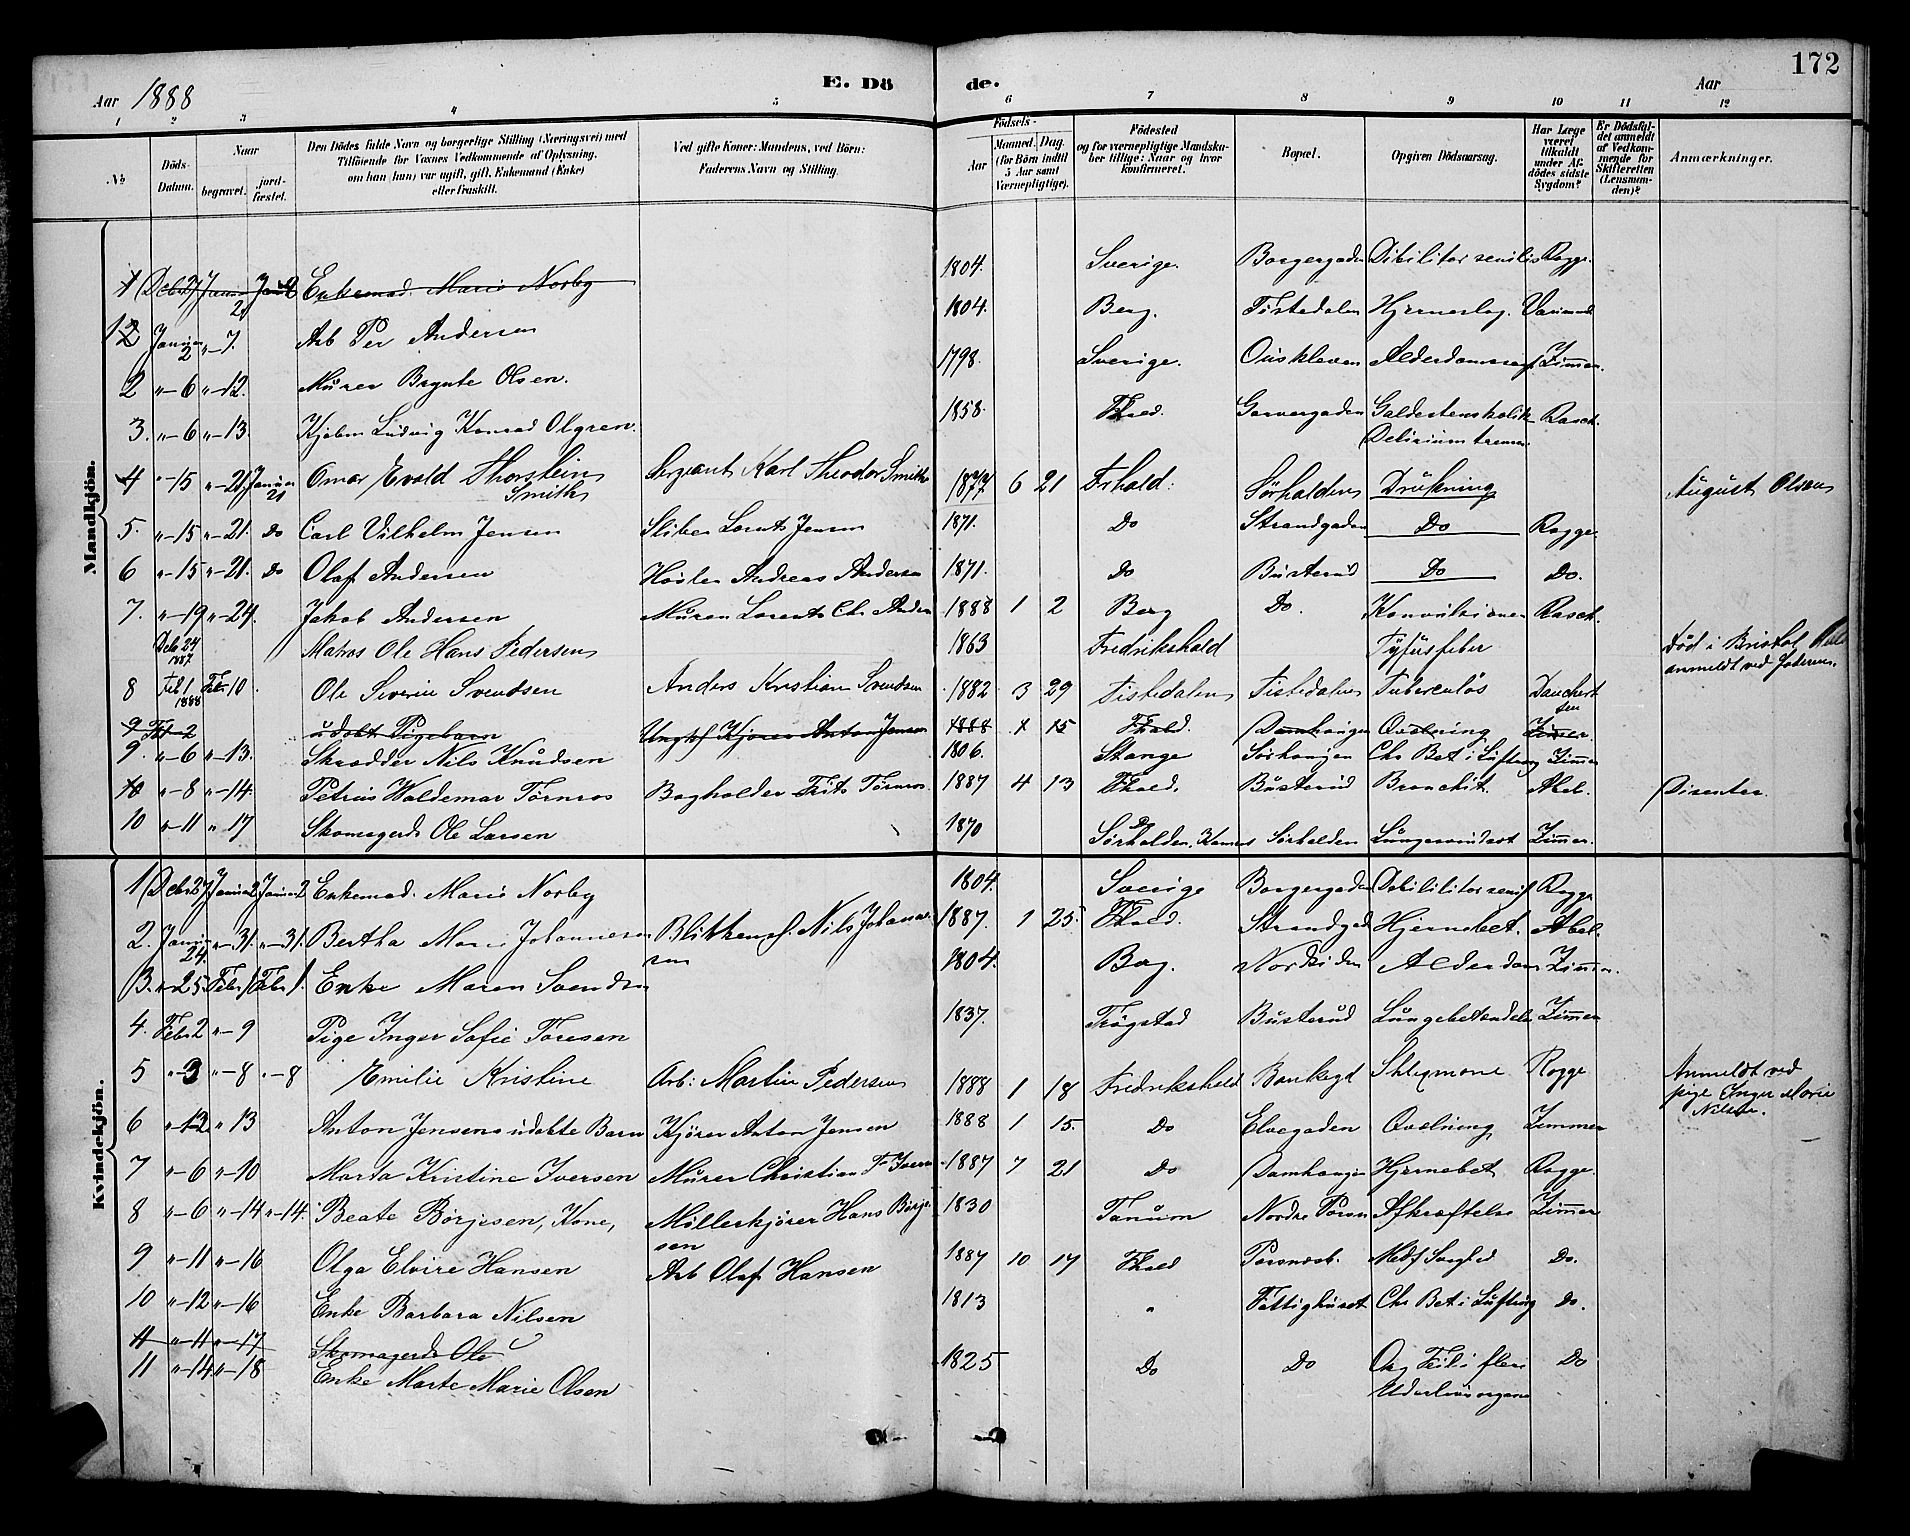 172
Aar 1888 E. Dö de. Aar
1 2 3 4 5 6 7 8 9 10 11 12
No. Döds-Datum. Naar begravet. jordfæstet. Den Dödes fulde Navn og borgerlige Stilling (Næringsvei) med Tilföiende for Voxnes Vedkommende af Oplysning, om han (hun) var ugift, gift, Enkemand (Enke) eller fraskilt. Ved gifte Koner: Mandens, ved Börn: Faderens Navn og Stilling. Födsels- Aar Maaned. Dag. (for Börn indtil 5 Aar samt Værnepligtige). Födested og for værnepligtige Mandskaber tillige: Naar og hvor konfirmeret. Bopæl. Opgiven Dödsaarsag. Har Læge været tilkaldt under Afdödes sidste Sygdom? Er Dödsfaldet anmeldt af Vedkommende for Skifteretten (Lensmanden)? Anmærkninger.
Mandkjön.
1 Debr 27 Januar 2 Januar 2 Enkemad. Marie Norby 1804. Sverige. Borgergaden Dibilitas senilis Rogge.
1 Januar 2 "-7. Arb Per Andersen 1804. Berg. Tistedalen Hjerneslag.
2 "-6 "-12. Murer Brynte Olsen. 1798. Sverige. Ouskleven Zimmer.
3. "-6 "-13. Ludvig Konrad Olgren. 1858. Fhald. Garvergaden Galdestenskolik Delirium tremens Rasch.
4 "-15 "-21 Januar 21 Omar Evald Thorstein Smith Sergeant Karl Theodor Smith 1877 6 21 Frhald. Sørhalden Drukning August Olsen
5. "-15 "-21. Do Carl Vilhelm Jensen Sliber Lorents Jensen 1871. Do Strandgaden Do Rogge
6 "-15 "-21. Do Olaf Andersen Høvler Andreas Andersen 1871. Do Busterud Do Do.
7. "-19 "-24. Jakob Andersen Murer Lorents Chr. Andersen 1888 1 2 Berg Do. Konvulsioner Rasch.
Debr 24 1887 Matros Ole Hans Pedersen 1863 Fredrikshald Tyfusfeber Død i Bristol anmeldt ved
8 Feb 1 1888 Feb 10. Ole Severin Svendsen Anders Kristian Svendsen 1882 3 29 Tistedalen Tistedalen Tuberculøs Danchertsen
9 Feb 2 udøbt Pigebarn Ungkf Kjører Anton Jensen 1888 1 15 Fhald. Damhaugen Qvælning Zimmer.
9. "-6 "-13. Skrædder Nils Knudsen 1806. Stange Sørhaugen Chr Bet i Luftrør Zimmer
10 "-8 "-14. Petrus Waldemar Tørnros Bogholder Frits Tørnros. 1887 4 13 Fhald. Busterud Bronchit. Abel. Disenter.
10 "-11 "17 Skomagerd. Ole Larsen 1870 Do Sørhalden Sørhalden Zimmer.
Kvindekjön.
1 Debr 27 Januar 2 Januar 2 Enkemad. Marie Norby 1804. Sverige Borgergaden Debilitas senil Rogge
2. Januar 24. "-31 "-31. Bertha Marie Johannesen Blikkensl. Nils Johannessen 1887. 1 25. Fhald. Strandgad Hjernebet. Abel.
3. "-25 Febr 1 Febr 1. Enke Maren Svendsen 1804. Berg. Nordsiden Alderdom Zimmer.
4. Febr 2 "-9 Pige Inger Sofie Toresen 1837. Trøgstad Busterud Lungebetændelse Zimmer
5 "-3 "-8 "-8 Emilie Kristine Arb: Martin Pedersen 1888 1 18 Fredrikshald Bankegd Rogge Anmeldt ved pige Inger Marie Nilsen.
6 "-12 "13 Anton Jensens udøbte Barn Kjører Anton Jensen 1888 1 15. Do Elvegaden Qvælning Zimmer
7 "-6 "-10 Marta Kristine Iversen Murer Christian F. Iversen 1887 7 21 Do Damhaugen Hjernebet Rogge.
8 "-6 "-14 "-14. Beate Børjesen, Kone, Møllerkjører Hans Børjesen 1830 Tanum Nordre Afkræftelse Zimmer
9 "-11 "-16 Olga Elvire Hansen Arb Olaf Hansen 1887 10 17 Fhald Medf Svaghed Do.
10 "-12 "-16 Enke Barbara Nilsen 1813 " Fattighuset Chr Bet i Luftrør Do.
11 "-11 "-17 Skomagerd. Ole
11 "-14 "-18 Enke Marte Marie Olsen 1825 Do Do Org Feil i flere Do